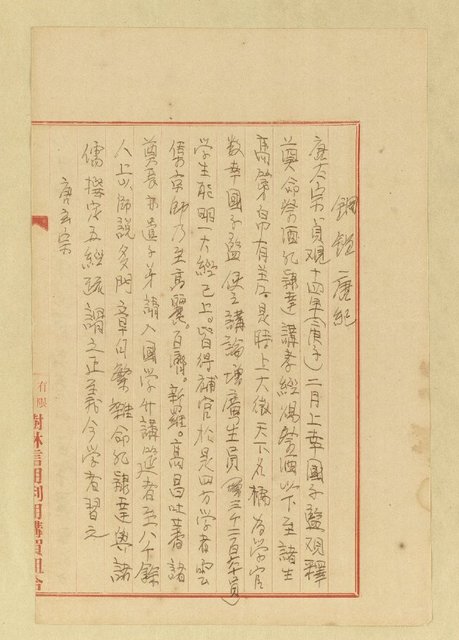 鋼鉅 唐紀
唐太宗 貞觀十四年(庚子)二月上幸國子監觀釋
奠命祭酒孔穎達 講孝經 賜祭酒以下至諸生
高第帛有差。是時上大徵天下名儒為學官
數幸國子監 使之講論 增廣生員 三千二百六十員
学生能明一大經已上。皆得補官 於是四方学者雲
集京師 乃至高麗。百濟。新羅。高昌 吐蕃 諸
酋長 亦遣子弟 請入國学 升講筵者 至八千餘
人 上以師說多門 章句繁雜 命孔穎達與諸
儒撰定五經疏 謂之正義 今学者習之
唐玄宗
有限
樹林信用利用購買組合